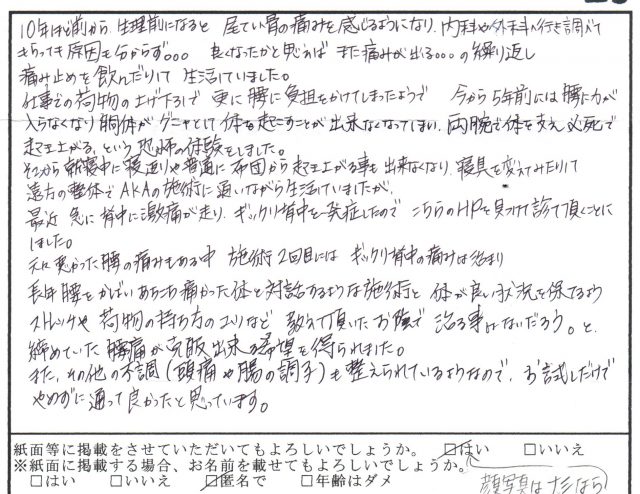 10年ほど前から、生理前になると 尾てい骨の痛みを感じるようになり、内科や外科へ行き調べて
もらっても原因も分からず。。。 良くなったかと思えば また痛みが出る。。。の繰り返し
痛み止めを飲んだりして 生活していました。
仕事での荷物の上げ下ろしで 更に腰に負担をかけてしまったようで 今から5年前には腰に力が
入らなくなり胴体がグニャとして体を起こすことが出来なくなってしまい、両腕で体を支え必死で
起き上がる、という恐怖の体験をしました。
それから就寝中に寝返りや普通に布団から起き上がる事も出来なくなり、寝具を変えてみたりして
遠方の整体でAKAの施術に通いながら生活していましたが、
最近 急に背中に激痛が走り、ギックリ背中を発症したので こちらのHPを見つけて診て頂くことに
しました。
元々悪かった腰の痛みもある中 施術2回目には ギックリ背中の痛みは治まり
長年腰をかばいあちこち痛かった体と対話するような施術と 体が良い状況を保てるよう
ストレッチや 荷物の持ち方のコツなど 教えて頂いたお陰で 治る事はないだろう。と、
諦めていた 腰痛が克服出来る希望を得られました。
また、その他の不調(頭痛や腸の調子)も整えられているようなので、お試しだけで
やめずに通って良かったと思っています。
紙面等に掲載をさせていただいてもよろしいでしょうか。 □はい □いいえ
※紙面に掲載する場合、お名前を載せてもよろしいでしょうか。
□はい □いいえ □匿名で □年齢はダメ
顔写真は なしなら